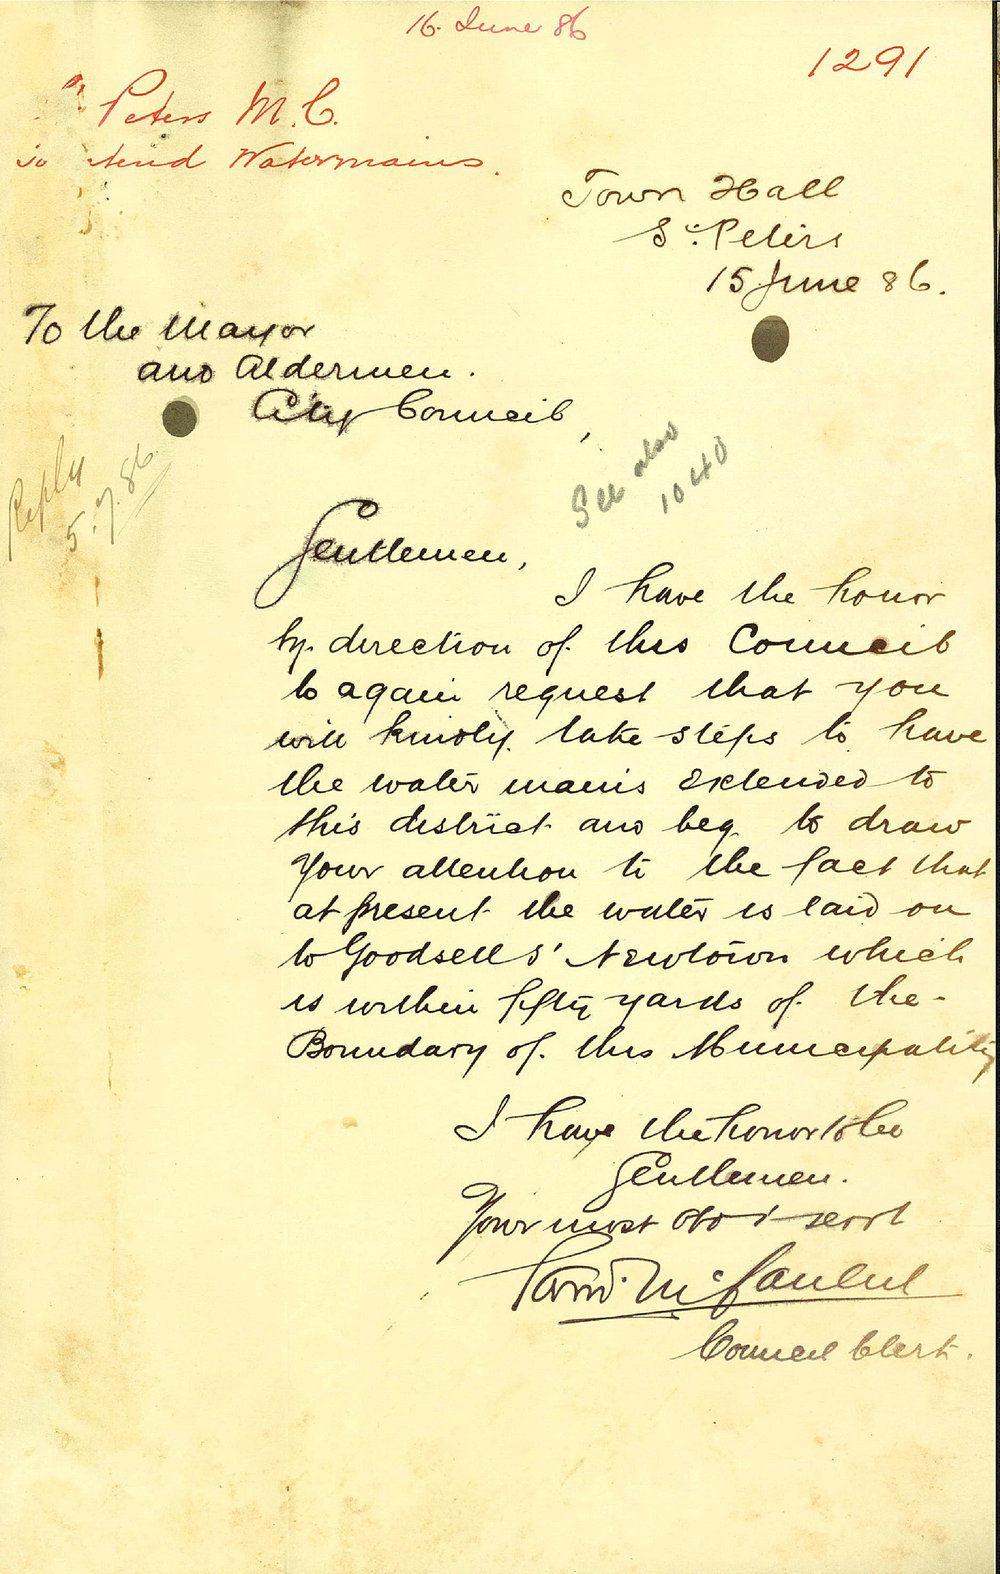 16 June 86
1291
St Peters M.C.
to extend Watermains.
Town Hall
St. Peters
15 June 86.
To the Mayor
and Aldermen.
City Council,
See also
1040
Reply
5.7.86
Gentlemen,
I have the honor
by direction of this Council
to again request that you
will kindly take steps to have
the water mains extended to
this district and beg to draw
your attention to the fact that
at present the water is laid on
to Goodsells' Newtown which
is within fifty yards of the
Boundary of this Municipality
I have the honor to be
Gentlemen.
Your most obt servt
Council Clerk.